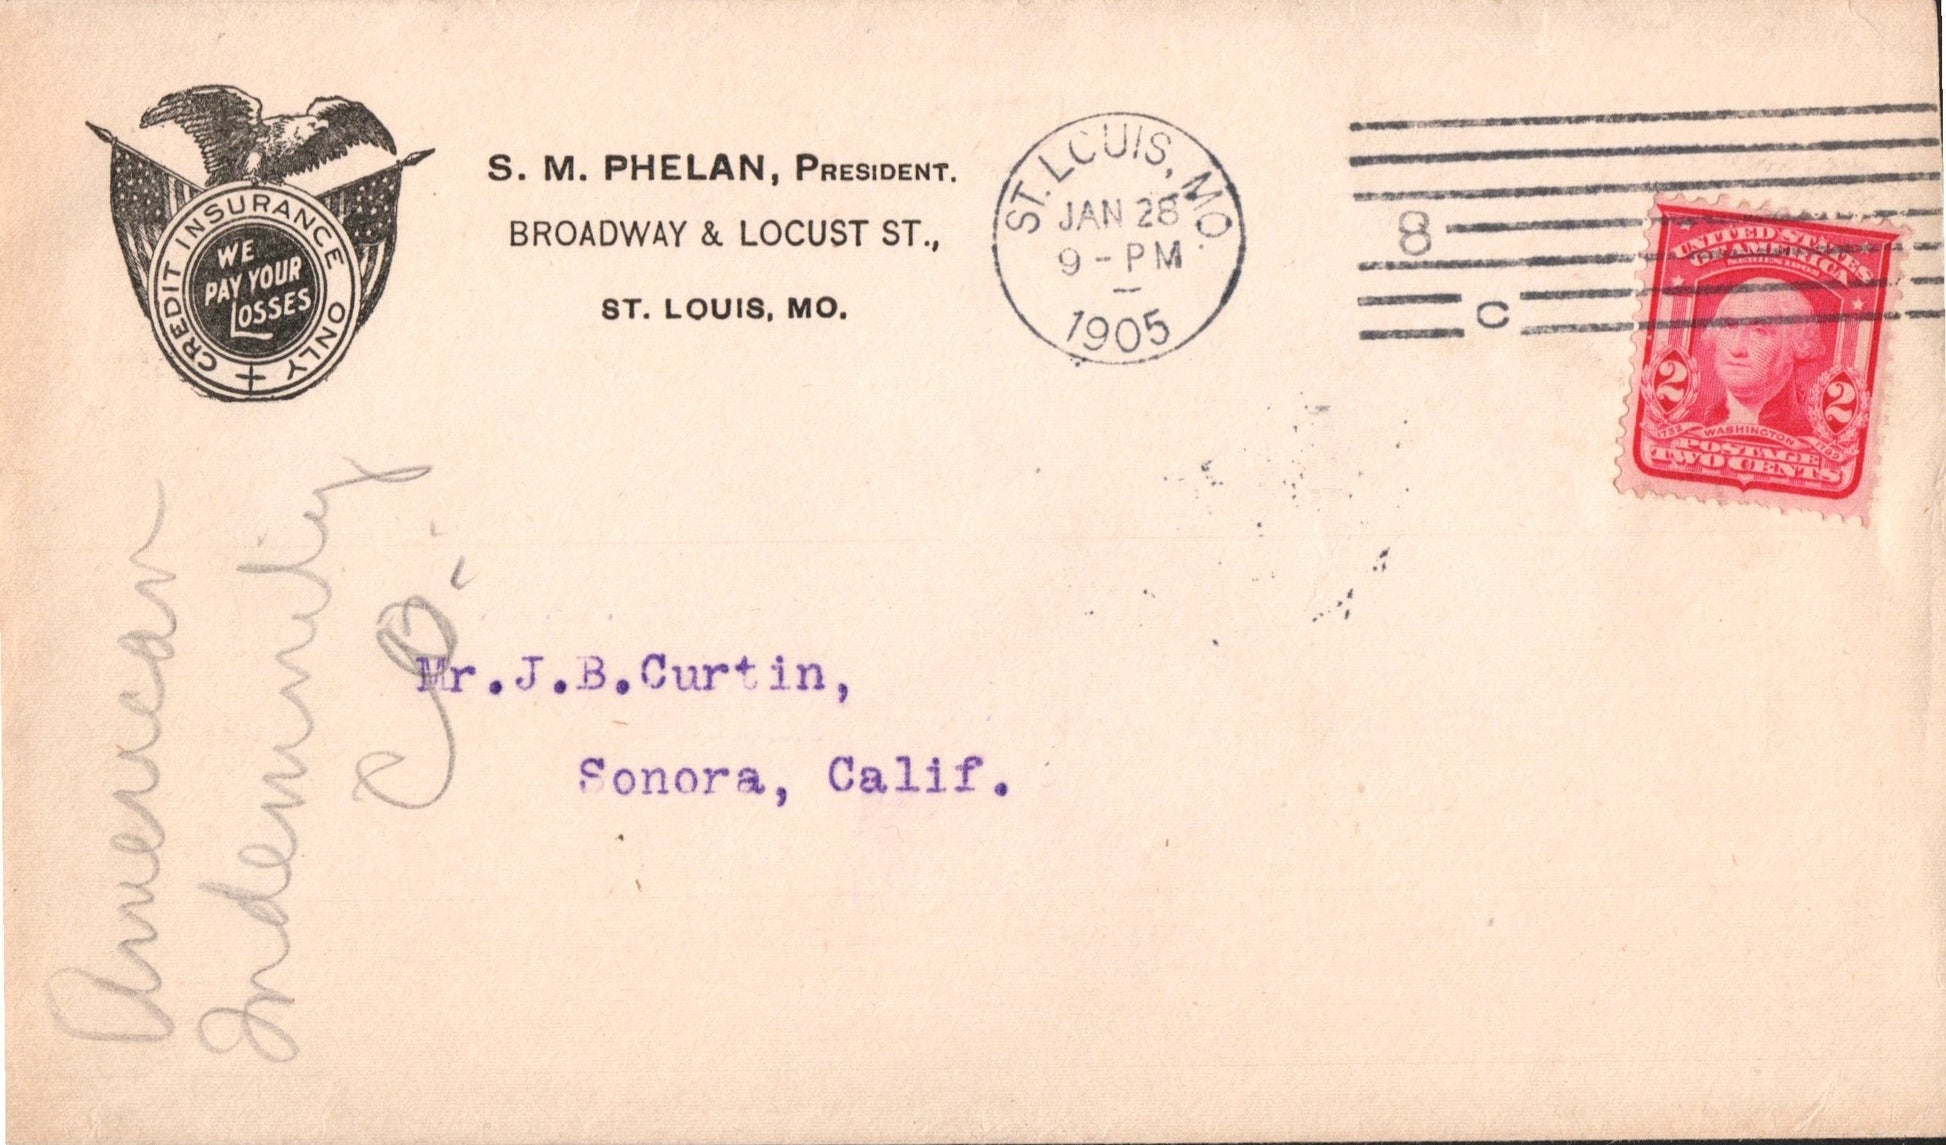 CREDIT INSURANCE ONLY
WE
PAY YOUR
LOSSES
S. M. PHELAN, PRESIDENT.
BROADWAY & LOCUST ST.,
ST. LOUIS, MO.
ST. LOUIS, MO.
JAN 28
9-PM
1905
8
C
UNITED STATES
OF AMERICA
SERIES 1902
2 2
1732 WASHINGTON 1799
POSTAGE
TWO CENTS
American
Indemnity
Co.
Mr.J.B.Curtin,
Sonora, Calif.